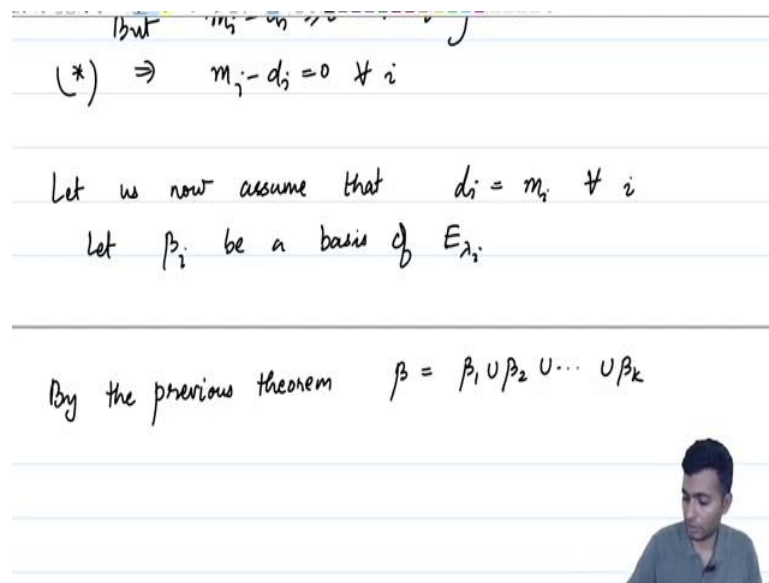 But
(*) ⇒ m_i - d_i = 0 ∀ i
Let us now assume that d_i = m_i ∀ i
Let β_i be a basis of E_{λ_i}.
By the previous theorem β = β_1 ∪ β_2 ∪ ··· ∪ β_k